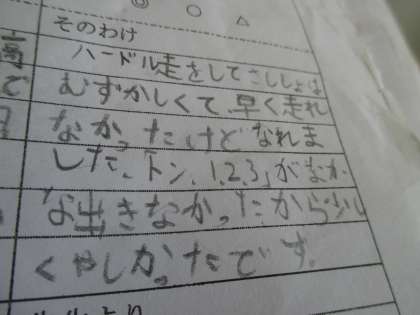 ◎ ○ △
そのわけ
ハードル走をしてさいしょは
むずかしくて、早く走れ
なかったけどなれま
した。トン、1、2、3、がなか
な出きなかったから少し
くやしかったです。